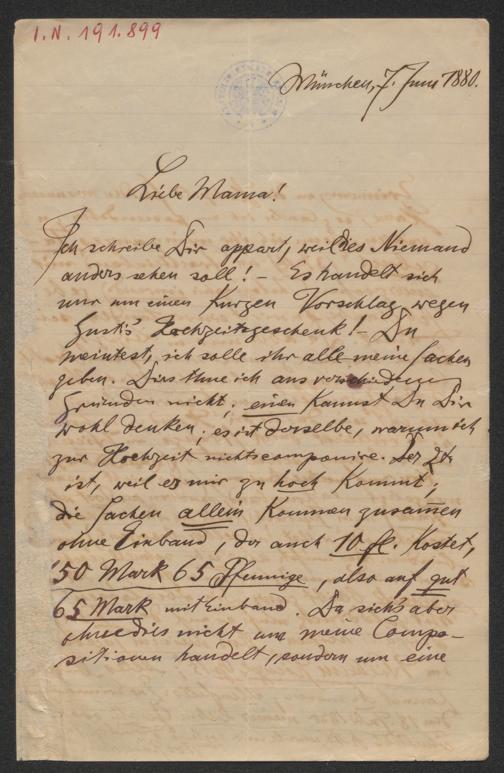 I.N. 191.899
München, 7. Juni 1880.
Liebe Mama!
Ich schreibe Dir appart, weil dies Niemand
anders sehen soll! – Es handelt sich
nur um einen kurzen Vorschlag wegen
Gusti's Hochzeitsgeschenk! – Du
meintest, ich solle ihr alle meine Sachen
geben. Dies thue ich aus verschiedenen
Gründen nicht; einen kannst Du Dir
wohl denken; es ist derselbe, warum ich
zur Hochzeit nichts componire. Der 2te
ist, weil es mir zu hoch kommt;
die Sachen allein kommen zusammen
ohne Einband, der auch 10 fl. kostet,
50 Mark 65 Pfennige, also auf gut
65 Mark mit Einband. Da sich's aber
ohnedies nicht um meine Compo-
sitionen handelt, sondern um eine